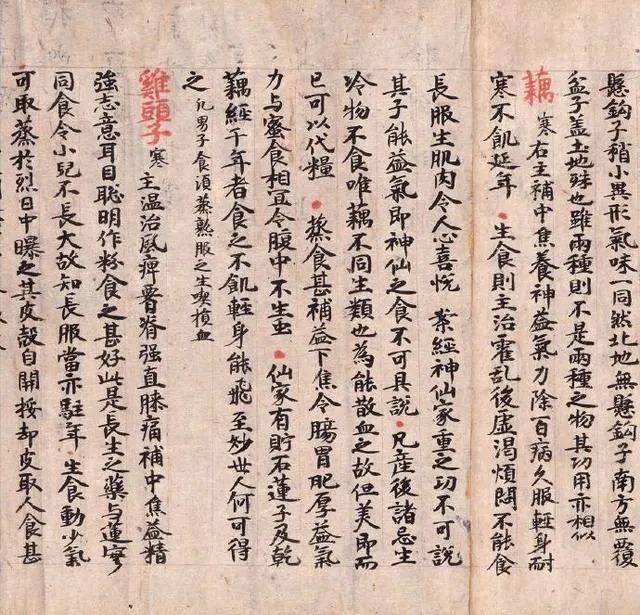 懸鈎子稍小異形氣味一同然北地無懸鈎子南方無覆
盆子盖土地殊也雖兩種則不是兩種之物其功用亦相似
藕 寒 右主補中焦養神益氣力除百病久服輕身耐
寒不飢延年 • 生食則主治霍乱後虛渴煩悶不能食
長服生肌肉令人心喜悅 案經神仙家重之功不可說
其子能益氣即神仙之食不可具說 • 凡産後諸忌生
冷物不食唯藕不同生類也為能散血之故但美即而
已可以代糧 • 蒸食甚補益下焦令腸胃肥厚益氣
力与蜜食相宜令腹中不生虫 • 仙家有貯石蓮子及乾
藕經千年者食之不飢輕身能飛至妙世人何可得
之 凡男子食須蒸熟服之生喫損血
雞頭子 寒 主温治風痺署脊强直膝痛補中焦益精
強志意耳目聰明作粉食之甚好此是長生之藥与蓮實
同食令小兒不長大故知長服當亦駐年 • 生食動少氣
可取蒸於烈日中曝之其皮殼自開挼却皮取人食甚